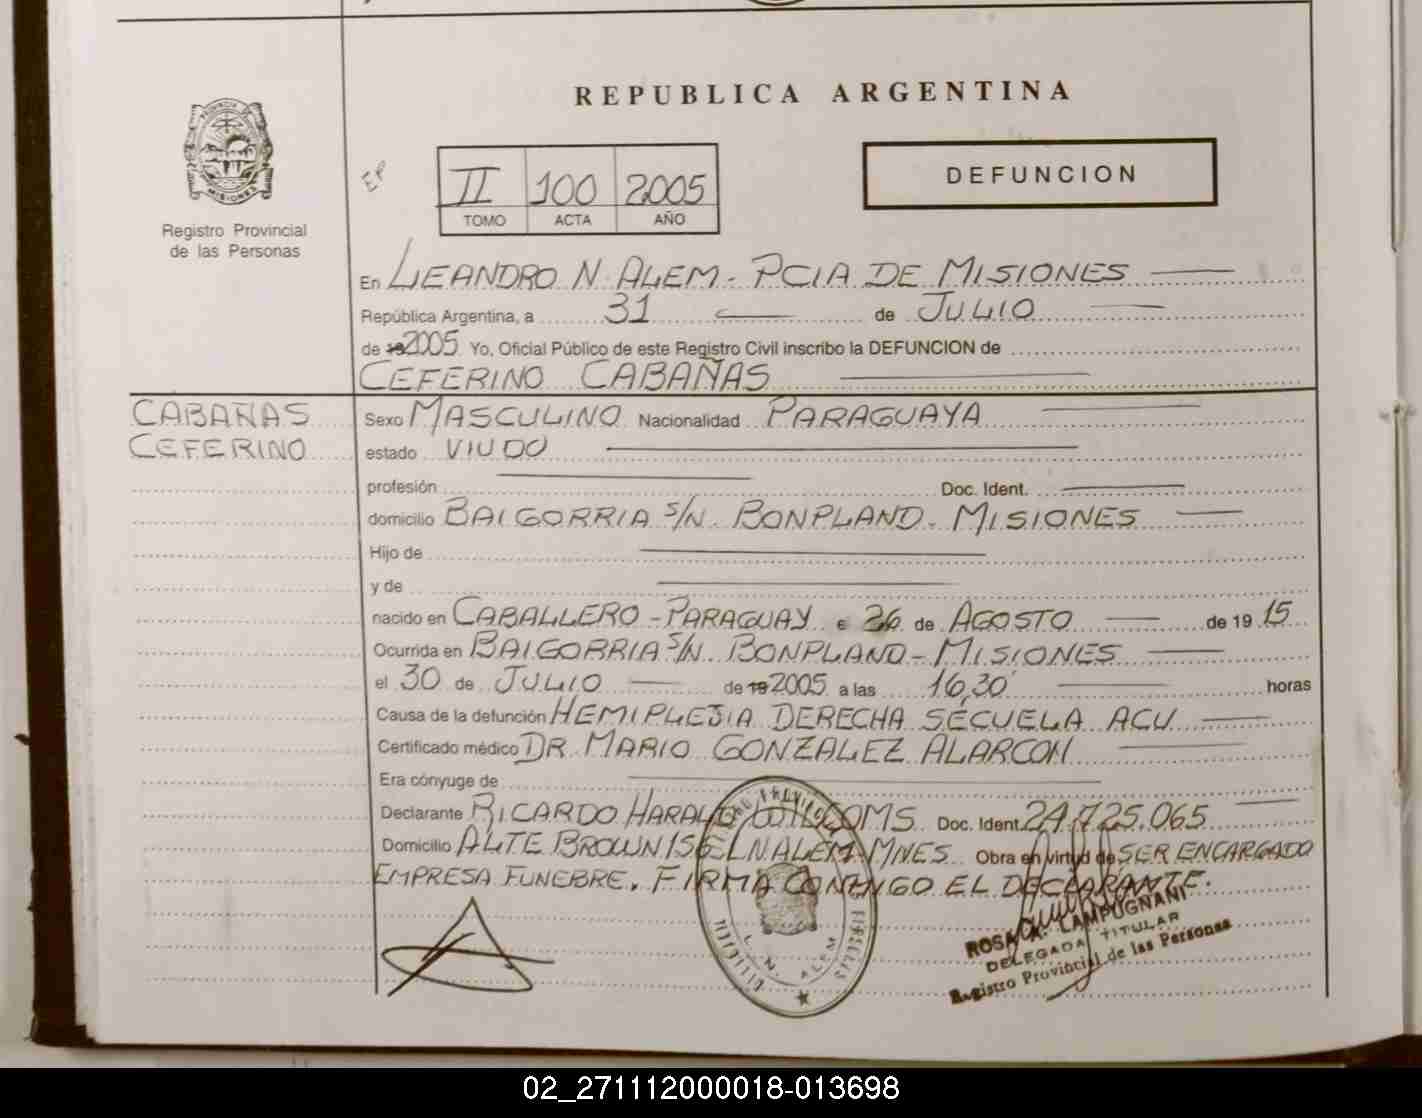 REPUBLICA ARGENTINA
PROVINCIA DE
MISIONES
Registro Provincial
de las Personas
II 100 2005
TOMO ACTA AÑO
DEFUNCION
En LEANDRO N. ALEM - PCIA DE MISIONES
República Argentina, a 31 de JULIO
de 19 2005 Yo, Oficial Público de este Registro Civil inscribo la DEFUNCION de
CEFERINO CABAÑAS
CABAÑAS
CEFERINO
Sexo MASCULINO Nacionalidad PARAGUAYA
estado VIUDO
profesión Doc. Ident.
domicilio BAIGORRIA S/N. BONPLAND. MISIONES
Hijo de
y de
nacido en CABALLERO - PARAGUAY e 26 de AGOSTO de 19 15
Ocurrida en BAIGORRIA S/N. BONPLAND - MISIONES
el 30 de JULIO de 19 2005 a las 16,30 horas
Causa de la defunción HEMIPLEJIA DERECHA SECUELA ACV
Certificado médico DR. MARIO GONZALEZ ALARCON
Era cónyuge de
Declarante RICARDO Doc. Ident. 24.725.065
Domicilio ALTE BROWN 156 L.N.ALEM - MNES Obra en virtud de SER ENCARGADO
EMPRESA FUNEBRE. FIRMA CONMIGO EL DECLARANTE.
L. N. ALEM
ROSA A. LAMPUGNANI
DELEGADA TITULAR
Registro Provincial de las Personas
02_271112000018-013698